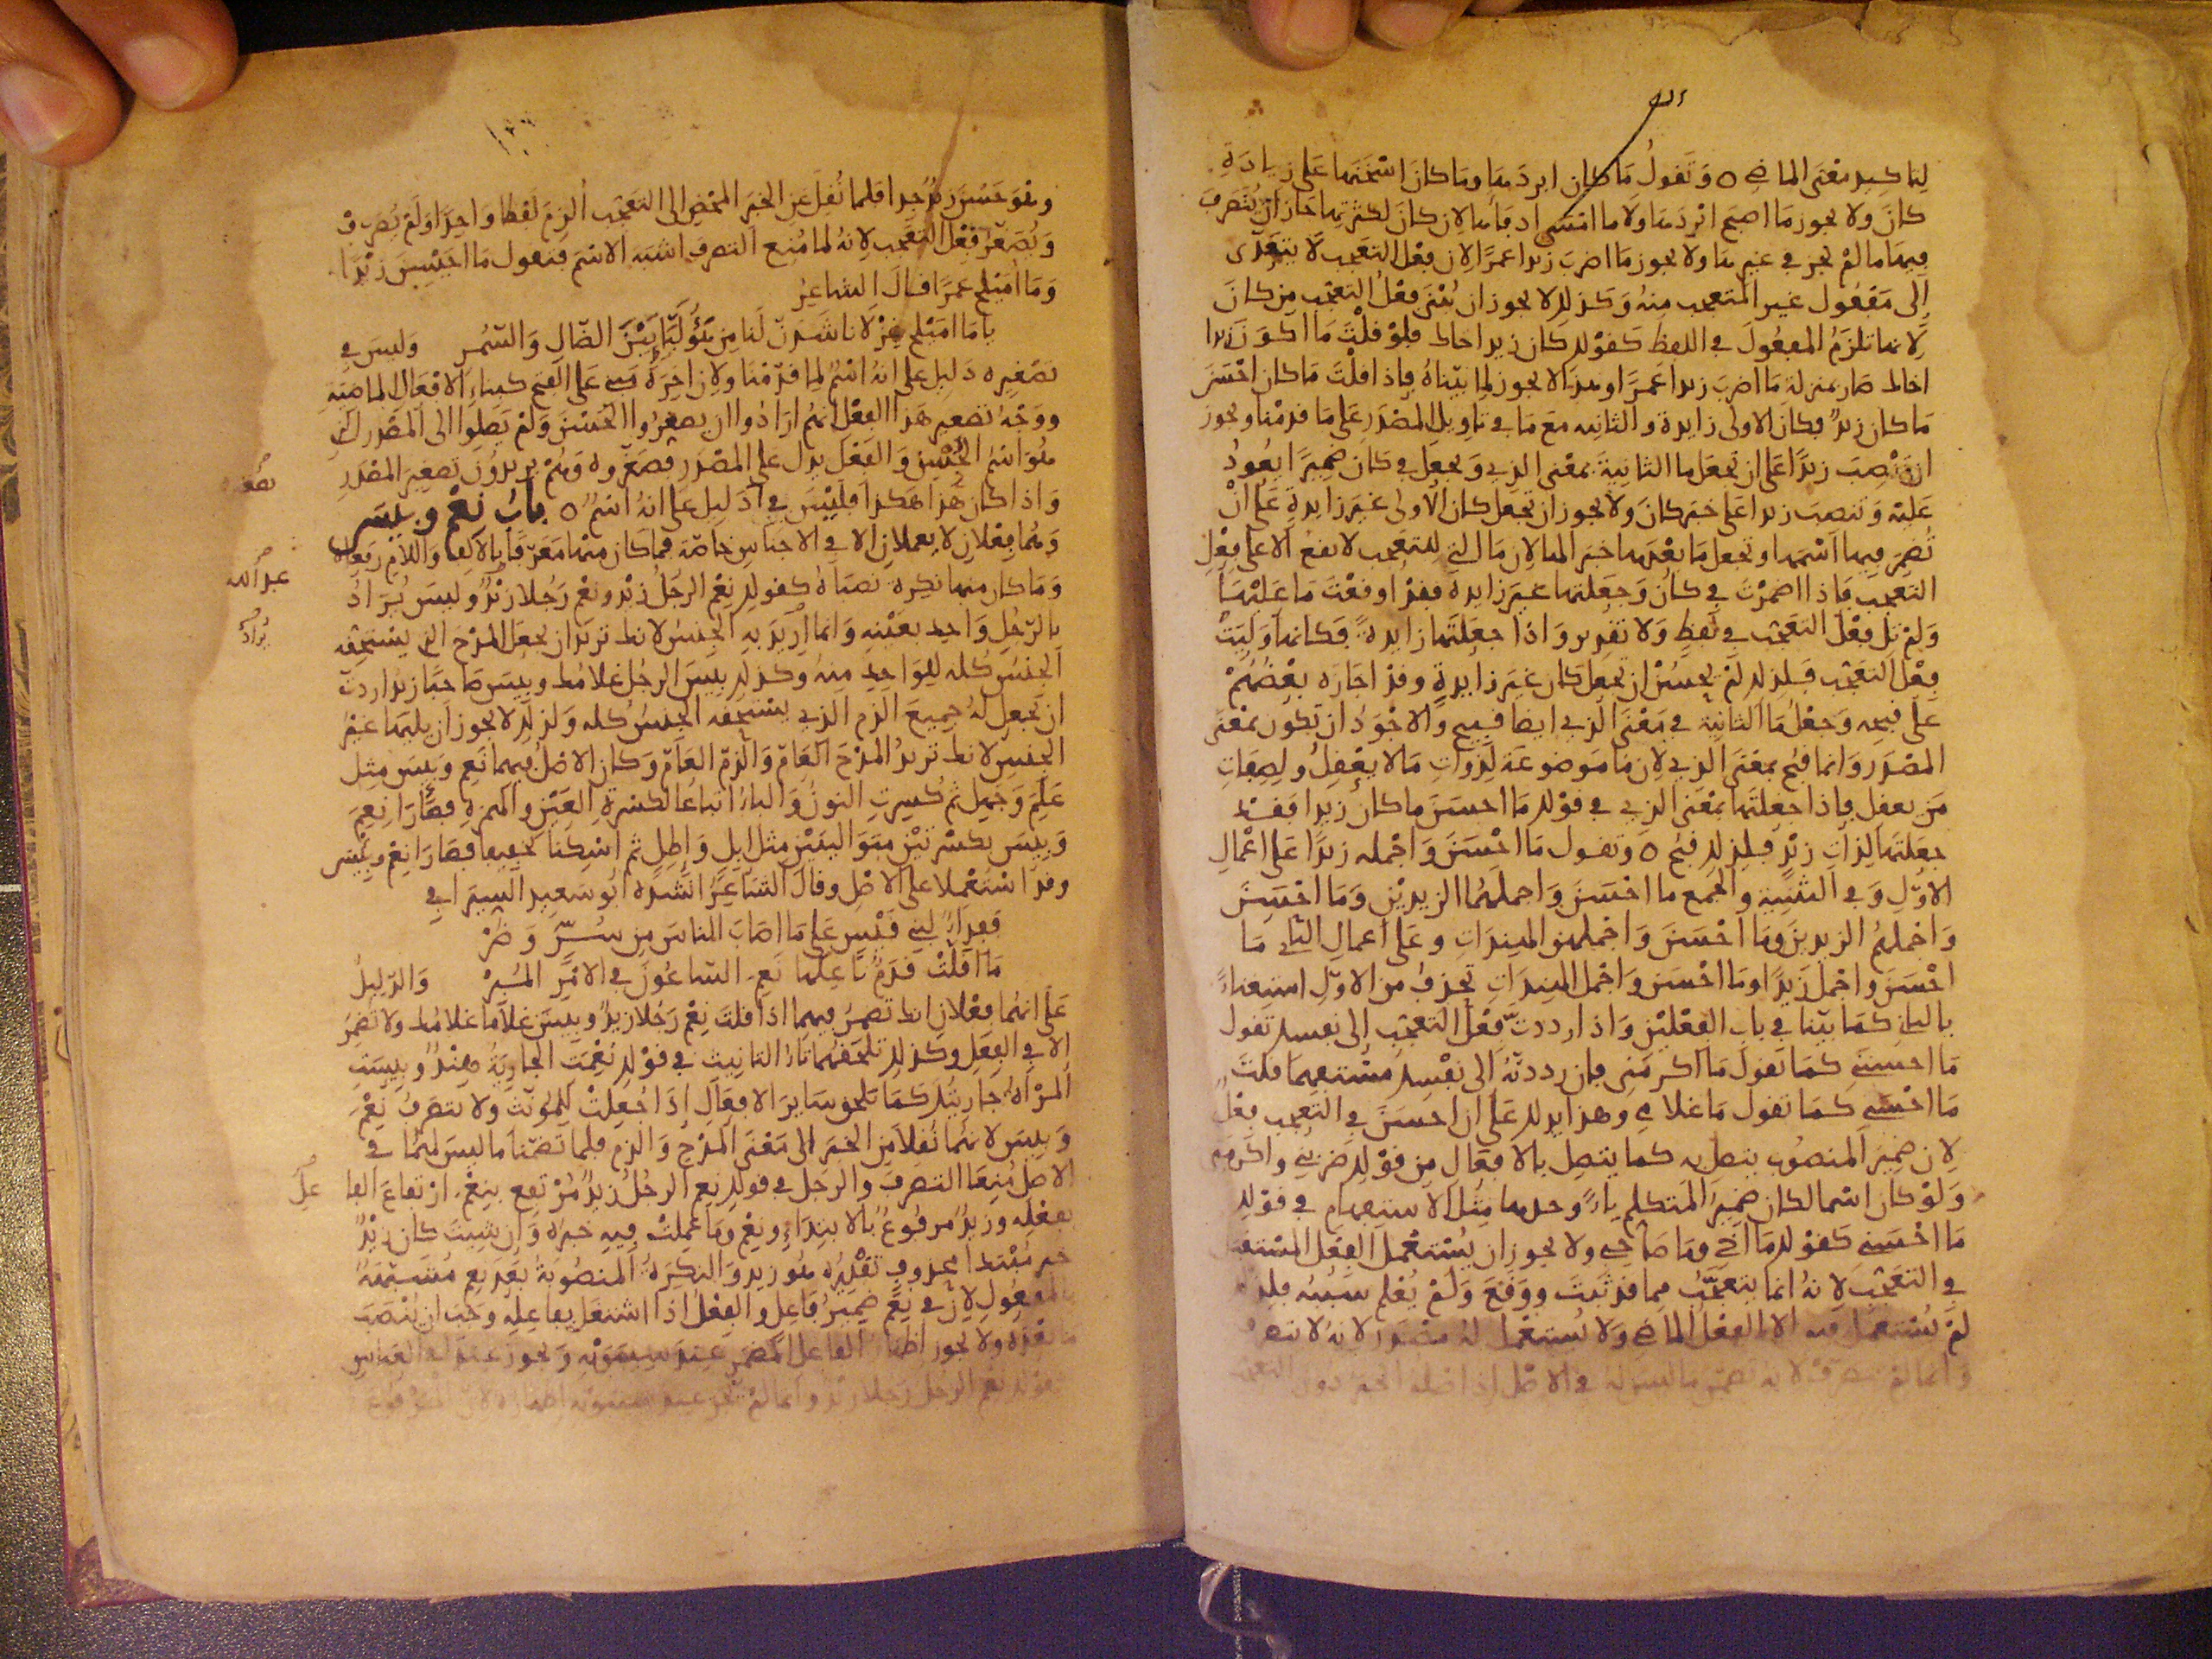 لتاكيد معْنَى الماضي ه وَتَقولُ مَا كان ابردَها وما كانَ اسْخَنَها عَلى زيادَةِ
كانَ ولا يجوز مَا اصبح ابْردَهَا وَلا ما امْسَى ادفأها لان كانَ لكثرتها جَازَ ان يُتَصرفَ
فيها ما لمْ يجز في غيرها ولا يجوز مَا اضربَ زيدا عمرًا لان فِعْل التعَجب لا يتعَدى
إلى مَفْعُول غيرِ المتعجب منهُ وَكذلك لا يجوز ان يُبْنَى فعْلُ التعَجب مِن كانَ
لانها تلزَمُ المفعُولَ في اللفظ كقوْلك كَان زيد اخاك فلوْ قلْتَ مَا اكوَنَ زيدا
اخاك صَار بمنزلة مَا اضربَ زيدا عَمرًا وهذا لا يجوز لما بيّناهُ فاذا قلْتَ مَا كان احْسَنَ
مَا كان زيدٌ فكانَ الاولى زايدة والثانيه مَعَ مَا في تاويل المصْدَرِ عَلى مَا قدمْنا ويجوز
ان تنْصِبَ زيدًا عَلى ان تجعَل ما الثانِيةَ بمعْنى الذي وَيجعل في كان ضميرًا يعُودُ
عَليْه وَتنصب زيدا عَلى خبَر كانَ ولا يجوز ان تجعَل كان الاولى غيرَ زايدةٍ عَلى انْ
تُضمِرَ فيها اسْمَها وتجعل مَا بعْدَها خبر الها لان مَا التي للتعَجب لا تقعُ الا على فِعْلِ
التعَجبِ فاذا اضمَرْتَ في كانَ وَجعَلتها غيرَ زايدة فقدْ اوقعْتَ مَا عَليْها
وَلمْ تلِ فِعْلَ التعَجب في لفظٍ وَلا تقدير وَاذا جعلتَها زايدةً فكانها وَلِيَتْ
فِعْل التعَجب فلذلك لمْ يحسُنْ ان تجعل كان غيرَ زايدةٍ وقدْ اجازه بعْضُهُمْ
عَلى قبحه وَجعْلُ مَا الثانية في مَعْنَى الذي ايضا قبيح وَالاجْوَدُ ان تكون بمعْنَى
المصْدَر وَانما قبُح بمعْنَى الذي لان مَا مَوضوعَة لذوَاتِ مَا لا يعْقِلُ ولصِفاتِ
مَن يعقل فاذا جعلتَها بمعْنَى الذي في قوْلك مَا احسَنَ ما كان زيدا فقد
جعَلتَها لذاتِ زيْدٍ فلذلك قبُح ه وتقول مَا احْسَنَ وَاجْمله زيدًا عَلى اعْمالِ
الاوّلِ وَفي التثنية والجمع ما احْسَنَ وَاجملهُما الزيديْنِ وَمَا احْسَنَ
وَاجملهُمُ الزيدينَ وَمَا احْسَنَ وَاجْملهن الهنداتِ وعَلى اعمالِ الثاني مَا
احْسَنَ واجْملَ زيدًا ومَا احْسَن وَاجْمل الهنداتِ تحذفُ من الاوّلِ استغناءً
بالثاني كمَا بيّنا في باب الفِعْليْن وَاذا رددتَ فِعْلَ التعَجب إلى نفسك تقول
مَا احسننى كمَا تقولُ مَا اكرَمَنى فان رددتَهُ الى نفْسِك مُسْتفهما قلتَ
مَا احْسَني كمَا تقول مَا غلامي وهذا يدلك عَلى ان احسَنَ في التعَجب فِعْلٌ
لان ضميرَ المنصُوب يتصل به كما يتصِل بالافعَالِ مِن قوْلك ضربني واكرَمَنى
وَلوْ كان اسْما لكان ضميرُ المتكلم ياءً وحدها مِثْل الاستفهام في قوْلك
مَا احْسَني كقوْلك مَا اخي ومَا صَاحِبي ولا يجوز ان يُسْتعْمل الفِعْل المسْتقبَل
في التعَجب لانهُ انما يتعَجّبُ مما قد ثبَتَ ووقعَ وَلمْ يُعْلم سَبَبُه فلذلك
لمْ يُسْتعْمَل فيه الا الفِعْلُ الماضي وَلا يُستعْمل لهُ مصْدر لانهُ لا يتصرف
وَانما لمْ يتصرف لانه تضمن ما ليس له في الاصْل اذ اصْله الخبر دون التعجب
وهْوَ حَسُنَ زيْدٌ جدا فلما نُقِلَ عَنِ الخبَرِ المحْضِ الى التعَجب الزِمَ لَفظا وَاحِدًا وَلَمْ يُصرفْ
وَيُصَغّرُ فِعْل التعجب لانهُ لما مُنِع التصرفَ اشبَهَ الاسْمَ فتقول مَا احَيْسِنَ زيْدًا
وَمَا امَيْلح عَمرًا قالَ الشاعِرُ
يا مَا امَيْلح غِزْلانا شَدَنّ لَنا مِن هَؤُلَيّائِكُنَّ الضّالِ وَالسّمُرِ وَليسَ في
تصْغيره دَليل على انهُ اسْمٌ لما قدّمْنا وَلان اخِرَهُ مبني عَلى الفتح كبناءِ الافعَالِ الماضيَةِ
ووَجْهُ تصغير هَذا الفِعْل انهُمْ ارَادُوا ان يصغرُوا الحُسْنَ وَلمْ يَصِلُوا الى المصْدَر الذي
هُوَ اسْمُ الحُسْنِ وَالفِعْل يدل على المصْدَر فصَغّروه وَهُمْ يريدُون تصغيرَ المصْدَرِ
وَاذا كان هَذا هَكذا فليْسَ فيه دَليل على انهُ اسْمٌ ه بابُ نِعْمَ وَبيسَ
وَهُما فِعْلانِ لا يعملانِ الا في الاجناسِ خاصّة فما كان منها مَعَرّفا بالالفِ وَاللامِ رفعَاهُ
وَمَا كان منها نكِرة نصبَاهُ كقولك نِعْمَ الرجُلُ زيْد ونعْمَ رَجُلا زيْدٌ وليسَ يُرَادُ
بالرّجُل وَاحِد بعَيْنِه وَانما اريدَ بهِ الجنسُ لانك تريد ان تجعَل المدْحَ الذي يسْتحقه
الجنسُ كله للوَاحِدِ مِنهُ وكذلك بيسَ الرجُل غلامُك وبيسَ صَاحِبًا زيد اردتَ
ان تجعلَ لهُ جميعَ الذم الذي يسْتحقه الجنسُ كله وَلذلك لا يجوز ان يليهما غيْرُ
الجنسِ لانك تريدُ المدْحَ العامّ وَالذمّ العَامّ وَكان الاصْلُ فيهما نَعِمَ وَبَيِسَ مِثل
عَلِمَ وَحَمِل ثم كُسِرتِ النونُ وَالباءُ اتباعًا لكسْرةِ العَيْنِ والهمزةِ فصَارَا نِعِمَ
وَبِيِسَ بكسْرتيْنِ متوَاليتَيْنِ مثل ابِل وَإطِلٍ ثم اسْكِنا تخفيفا فصَارَا نِعْمَ وبِيْسَ
وقد اسْتعْملا على الاصْل وقالَ الشاعِرُ انشدَهُ ابُو سَعيد السِيرافي
فَفِدَاءٌ لبني قيْسٍ عَلى مَا اصَابَ الناسَ مِن سُرٍّ وَضُرّْ
مَا اقلّتْ قدَمٌ نَاعِلها نَعِمَ السّاعُونَ في الامْرِ المُبِرّْ وَالدّليلُ
عَلى انهُما فِعْلانِ انك تضمِرُ فيهما اذا قلتَ نِعْمَ رَجُلا زيدٌ وبيسَ غلامًا غلامُك ولا تُضمِرُ
الا في الفِعَلِ وكذلك تلحَقهُما تاءُ التانيث في قوْلك نُعْمَتِ الجاريَةُ هِنْدٌ وبِيسَتِ
المرْأةُ جاريتُك كمَا تلحَقُ سَايرَ الافعَال إذَا جُعِلتْ للمُؤنّثِ ولا يتصَرفُ نِعْمَ
وَبيسَ لانهُما نُقِلا مِنَ الخبَر الى مَعْنى المدْح وَالذم فلما تضمّنا مَا ليسَ لهُما في
الاصل مُنِعَا التصَرفَ وَالرجُلُ في قولك نِعْمَ الرجُلُ زيدٌ مُرْتَفِع بنِعْمَ ارْتفاعَ الفا
بفعْلِه وَزيدٌ مَرفوعٌ بالابتداءِ ونِعْمَ ومَا عمِلتْ فيهِ خبرُه وَان شِيتَ كان زيْدٌ
خبَر مُبْتدا محذوفٍ تقْديرُه هُوَ زيد وَالنكِرَةُ المنصُوبَةُ بَعْدَ نِعْمَ مُشبّهَةٌ
بالمفعُولِ لان في نِعْمَ ضميرُ فاعِل والفِعْلُ اذا اشتغَل بفاعِلِه وَجبَ ان يُنْصَبَ
مَا بعْدَه ولا يجوز اظهَارُ الفاعل المضمَر عِندَ سِيبَوَيْهِ وَيجوز عندَ ابي العَبّاسِ
قوْلك نِعْمَ الرجُل رَجُلا زيْد وانما لمْ يجز عندَ سيبويه اظهَاره لان
عبد الله
يُرادُ
عل